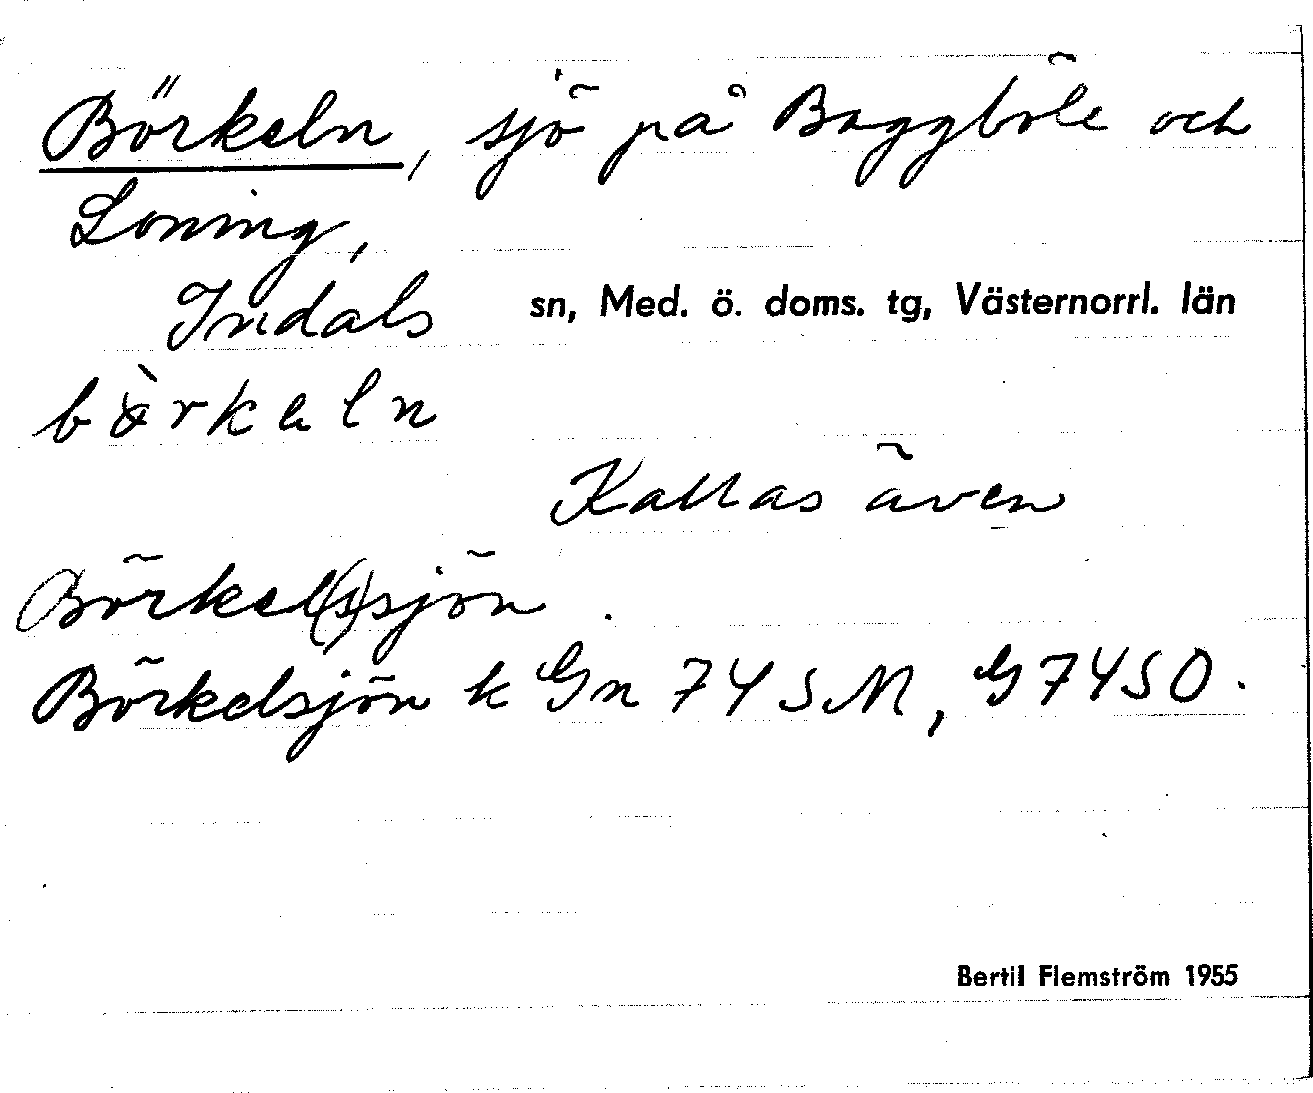 Börkeln, sjö på Baggböle och
Loning,
Indals sn, Med. ö. doms. tg, Västernorrl. län
bὸrkəln
Kallas även
Börkel(s)sjön.
Börkelsjön k Gn 74 SM, G 74 SO.
Bertil Flemström 1955